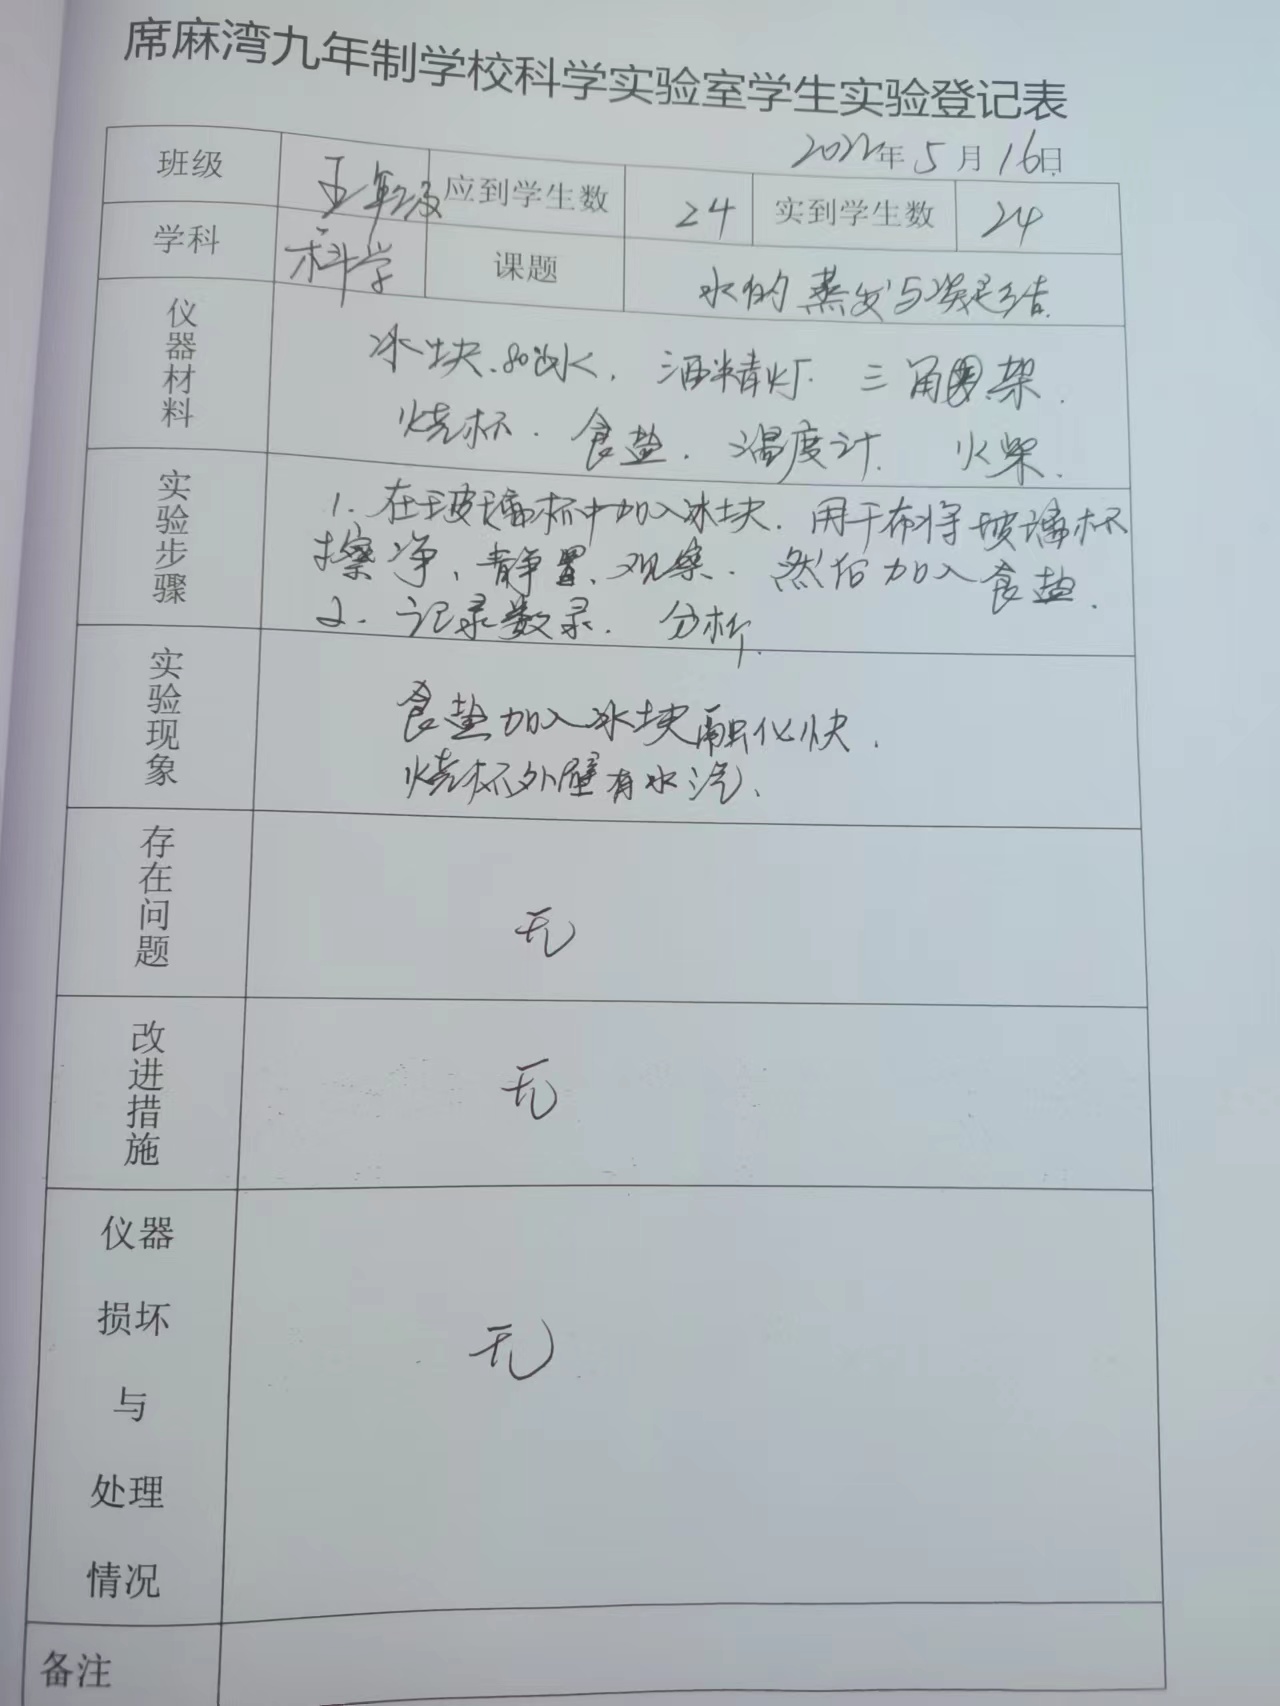 席麻湾九年制学校科学实验室学生实验登记表
2022年5月16日
班级 五年级 应到学生数 24 实到学生数 24
学科 科学 课题 水的蒸发与凝结
仪器材料
冰块、水、酒精灯.三角架.
烧杯.食盐.温度计.火柴.
实验步骤
1.在玻璃杯中加入冰块.用干布将玻璃杯
擦净、静置、观察.然后加入食盐.
2.记录数录.分析.
实验现象
食盐加入冰块融化快.
烧杯外壁有水汽、
存在问题
无
改进措施
无
仪器
损坏
与
处理
情况
无
备注